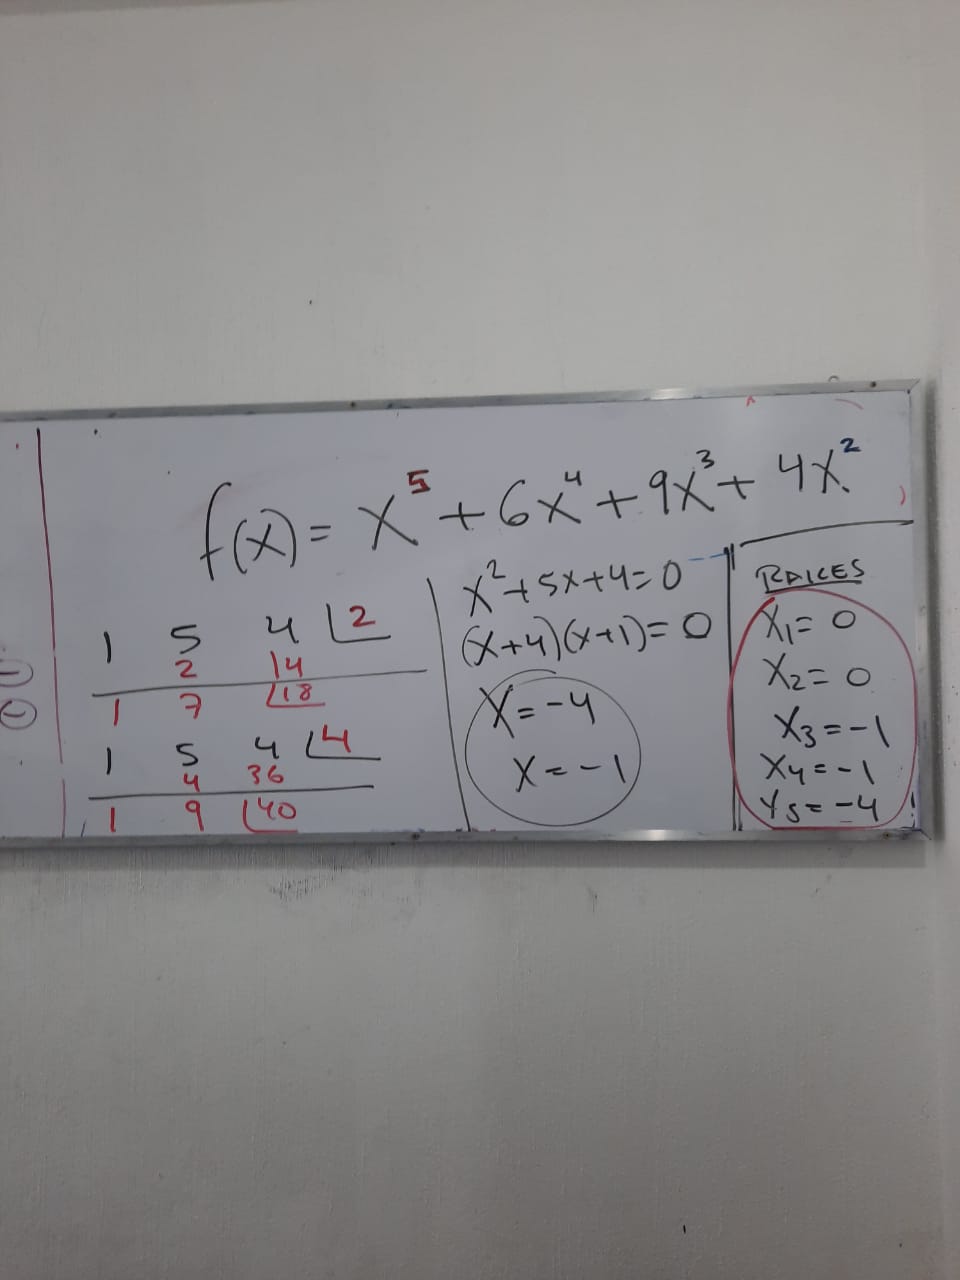 f(x) = x⁵ + 6x⁴ + 9x³ + 4x²
1 5 4 2
2 14
1 7 18
1 5 4 4
4 36
1 9 40
x² + 5x + 4 = 0
(x+4)(x+1) = 0
x = -4
x = -1
RAICES
x₁ = 0
x₂ = 0
x₃ = -1
x₄ = -1
x₅ = -4